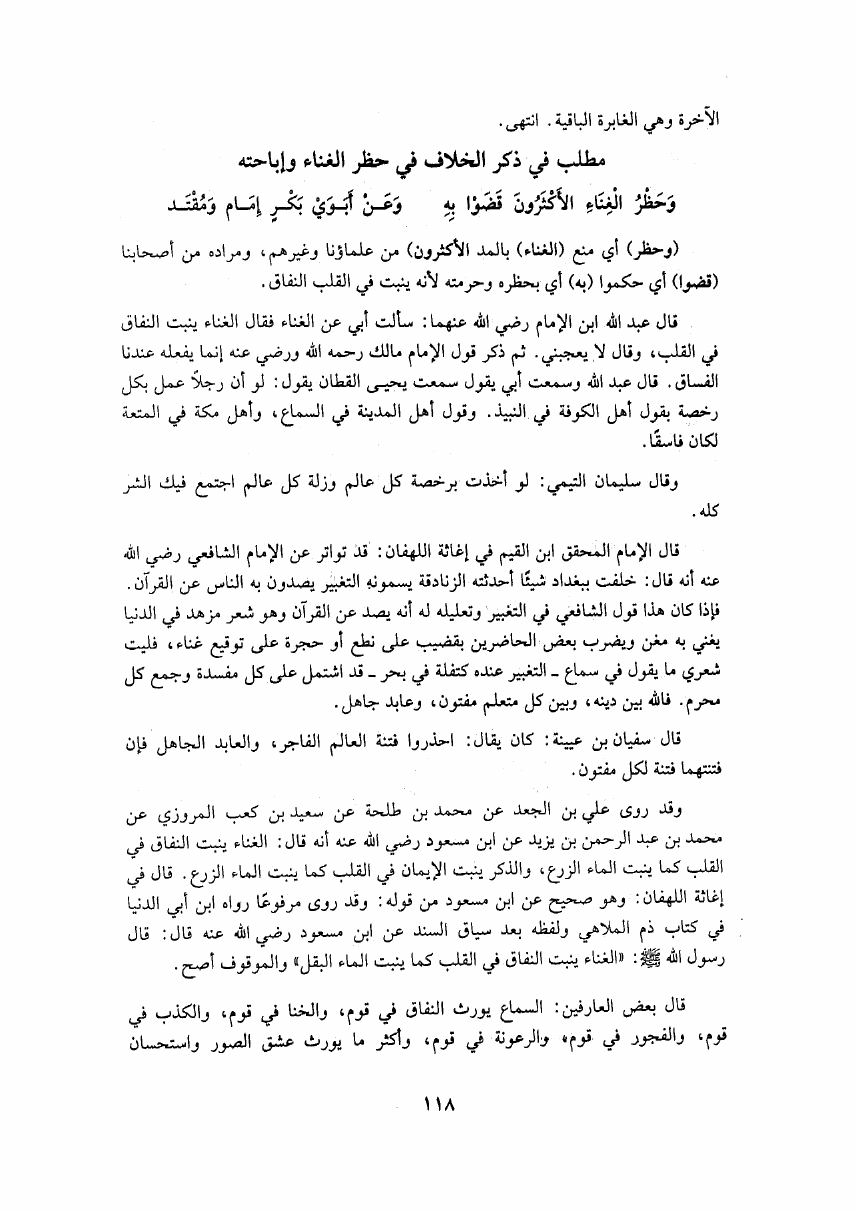 الآخرة وهي الغابرة الباقية. انتهى.
مطلب في ذكر الخلاف في حظر الغناء وإباحته
وَحَظْرُ الْغِنَاءِ الأَكْثَرُونَ قَضَوْا بِهِ وَعَـنْ أَبَـوَيْ بَكْـرٍ إِمَـامٍ وَمُقْتَـد
(وحظر) أي منع (الغناء) بالمد الأكثرون) من علماؤنا وغيرهم، ومراده من أصحابنا
(قضوا) أي حكموا (به) أي بحظره وحرمته لأنه ينبت في القلب النفاق.
قال عبد الله ابن الإمام رضي الله عنهما: سألت أبي عن الغناء فقال الغناء ينبت النفاق
في القلب، وقال لا يعجبني. ثم ذكر قول الإمام مالك رحمه الله ورضي عنه إنما يفعله عندنا
الفساق. قال عبد الله وسمعت أبي يقول سمعت يحيـى القطان يقول: لو أن رجلاً عمل بكل
رخصة بقول أهل الكوفة في النبيذ. وقول أهل المدينة في السماع، وأهل مكة في المتعة
لكان فاسقًا.
وقال سليمان التيمي: لو أخذت برخصة كل عالم وزلة كل عالم اجتمع فيك الشر
كله.
قال الإمام المحقق ابن القيم في إغاثة اللهفان: قد تواتر عن الإمام الشافعي رضي الله
عنه أنه قال: خلفت ببغداد شيئًا أحدثته الزنادقة يسمونه التغبير يصدون به الناس عن القرآن.
فإذا كان هذا قول الشافعي في التغبير وتعليله له أنه يصد عن القرآن وهو شعر مزهد في الدنيا
يغني به مغن ويضرب بعض الحاضرين بقضيب على نطع أو حجرة على توقيع غناء، فليت
شعري ما يقول في سماع ـ التغبير عنده كتفلة في بحر ـ قد اشتمل على كل مفسدة وجمع كل
محرم. فالله بين دينه، وبين كل متعلم مفتون، وعابد جاهل.
قال سفيان بن عيينة: كان يقال: احذروا فتنة العالم الفاجر، والعابد الجاهل فإن
فتنتهما فتنة لكل مفتون.
وقد روى علي بن الجعد عن محمد بن طلحة عن سعيد بن كعب المروزي عن
محمد بن عبد الرحمن بن يزيد عن ابن مسعود رضي الله عنه أنه قال: الغناء ينبت النفاق في
القلب كما ينبت الماء الزرع، والذكر ينبت الإيمان في القلب كما ينبت الماء الزرع. قال في
إغاثة اللهفان: وهو صحيح عن ابن مسعود من قوله: وقد روى مرفوعًا رواه ابن أبي الدنيا
في كتاب ذم الملاهي ولفظه بعد سياق السند عن ابن مسعود رضي الله عنه قال: قال
رسول الله ﷺ: «الغناء ينبت النفاق في القلب كما ينبت الماء البقل» والموقوف أصح.
قال بعض العارفين: السماع يورث النفاق في قوم، والخنا في قوم، والكذب في
قوم، والفجور في قوم، والرعونة في قوم، وأكثر ما يورث عشق الصور واستحسان
١١٨